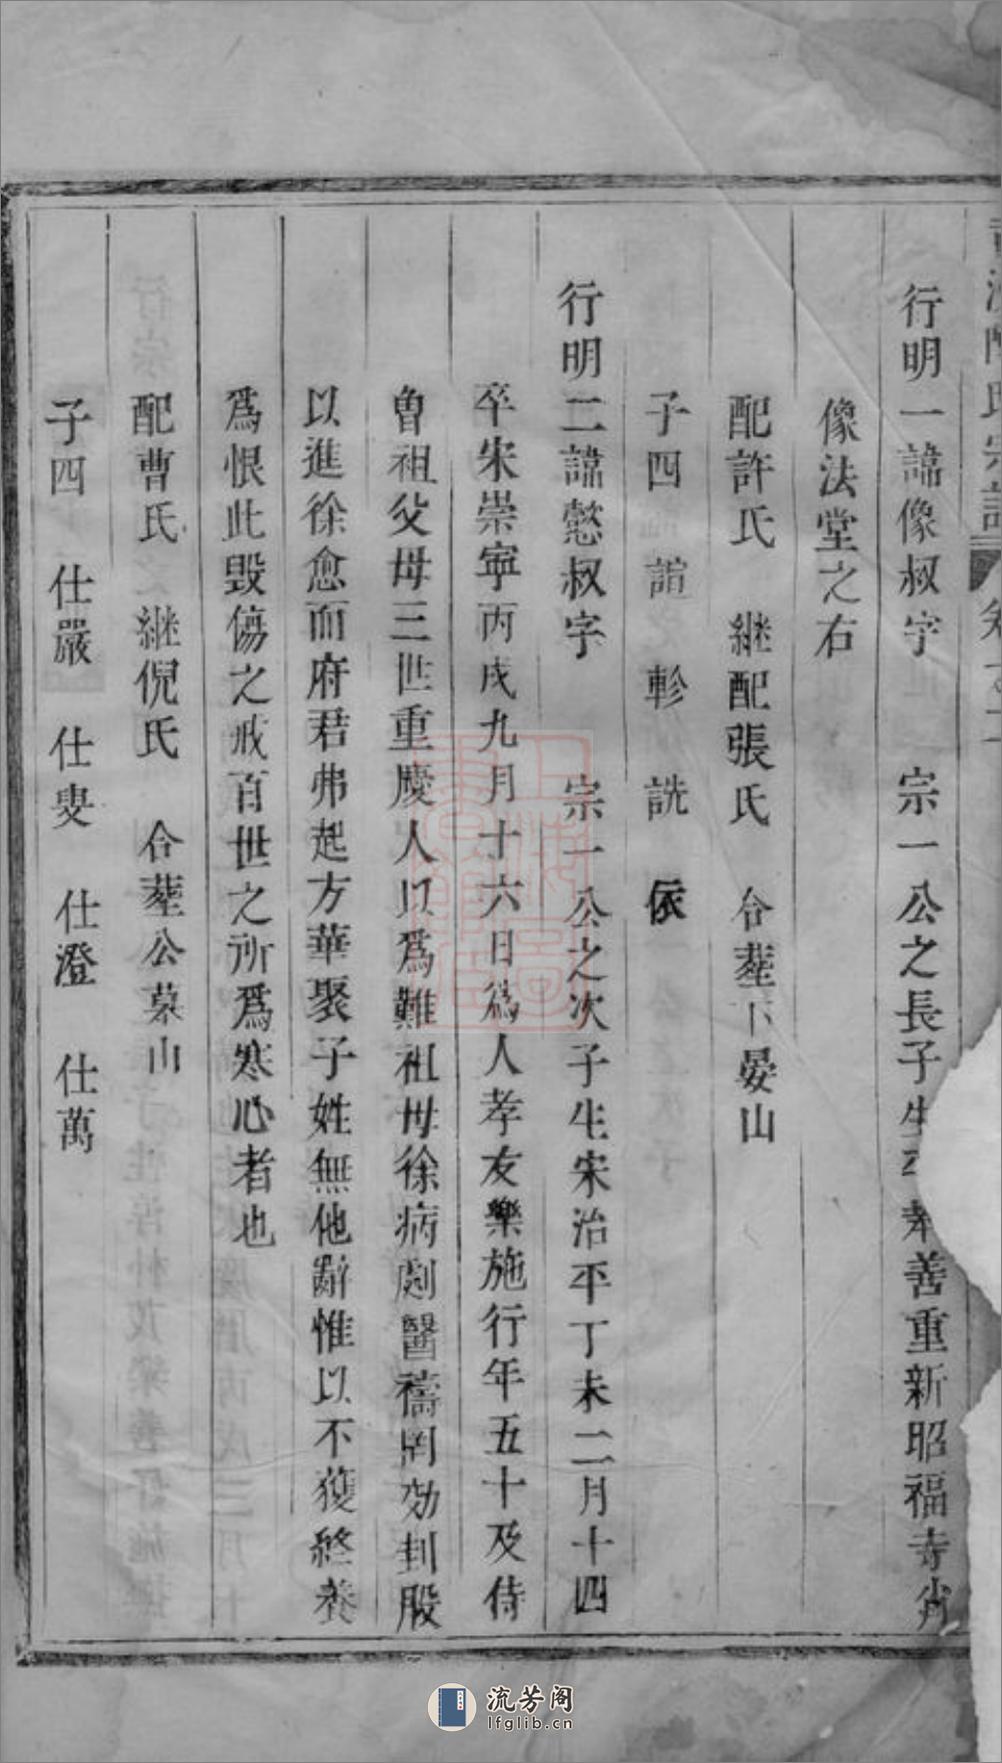 氏宗譜 卷
行明一諱像叔字 宗一公之長子生平奉善重新昭福寺肖
像法堂之右
配許氏 継配張氏 合塟下晏山
子四 誼 軫 詵 㑞
行明二諱慤叔字 宗一公之次子生宋治平丁未二月十四
卒宋崇寧丙戌九月十六日為人孝友樂施行年五十及侍
曾祖父母三世重慶人以爲難祖母徐病劇醫禱罔効刲股
以進徐愈而府君弗起方華聚子姓無他辭惟以不獲終養
爲恨此毀傷之戒百世之所爲寒心者也
配曹氏 継倪氏 合塟公菓山
子四 仕嚴 仕叟 仕澄 仕萬
上海圖書館藏
流芳阁
lfglib.cn